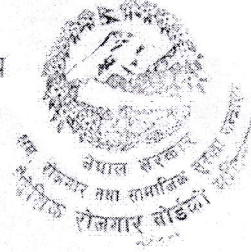 नेपाल सरकार
श्रम रोजगार तथा सामाजिक सुरक्षा
वैदेशिक रोजगार बोर्डको